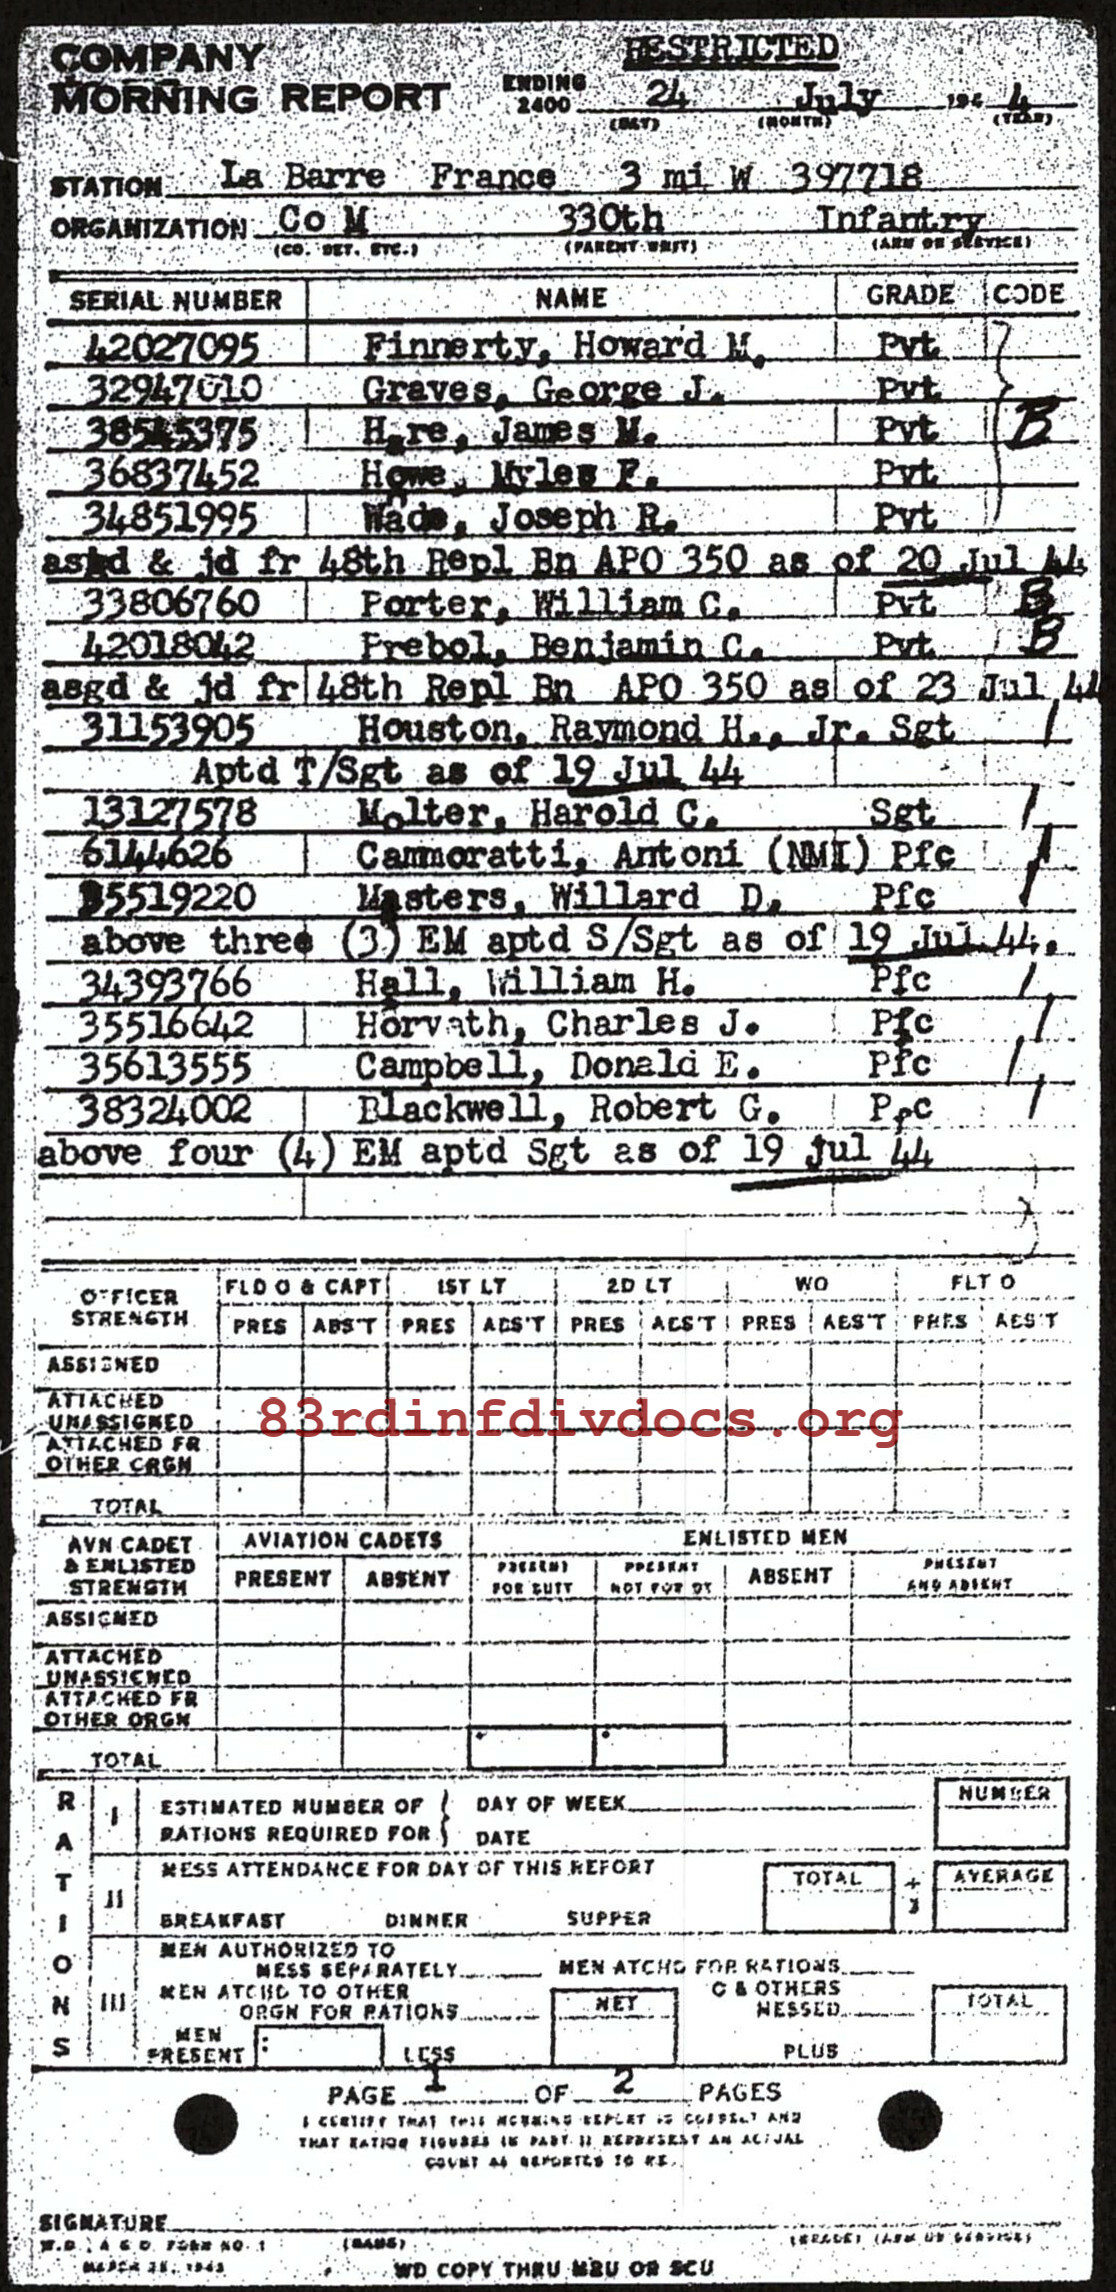 COMPANY
RESTRICTED
MORNING REPORT
ENDING
2400 24 July 194 4
(DAY) (MONTH) (YEAR)
STATION La Barre France 3 mi W 397718
ORGANIZATION Co M 330th Infantry
(CO. DET. ETC.) (PARENT UNIT) (ARM OR SERVICE)
SERIAL NUMBER NAME GRADE CODE
42027095 Finnerty, Howard M. Pvt
32947010 Graves, George J. Pvt
38545375 Hare, James M. Pvt B
36837452 Howe, Myles F. Pvt
34851995 Wade, Joseph R. Pvt
asgd & jd fr 48th Repl Bn APO 350 as of 20 Jul 44
33806760 Porter, William C. Pvt B
42018042 Prebol, Benjamin C. Pvt B
asgd & jd fr 48th Repl Bn APO 350 as of 23 Jul 44
31153905 Houston, Raymond H., Jr. Sgt /
Aptd T/Sgt as of 19 Jul 44
13127578 Molter, Harold C. Sgt /
6144626 Cammoratti, Antoni (NMI) Pfc /
35519220 Masters, Willard D. Pfc /
above three (3) EM aptd S/Sgt as of 19 Jul 44.
34393766 Hall, William H. Pfc /
35516642 Horvath, Charles J. Pfc /
35613555 Campbell, Donald E. Pfc /
38324002 Blackwell, Robert G. Pfc /
above four (4) EM aptd Sgt as of 19 jul 44
OFFICER STRENGTH FLD O & CAPT 1ST LT 2D LT WO FLT O
PRES ABS'T PRES ABS'T PRES ABS'T PRES ABS'T PRES ABS'T
ASSIGNED
ATTACHED
UNASSIGNED
83rdinfdivdocs.org
ATTACHED FR
OTHER ORGN
TOTAL
AVN CADET
& ENLISTED
STRENGTH
AVIATION CADETS ENLISTED MEN
PRESENT ABSENT PRESENT FOR DUTY PRESENT NOT FOR DY ABSENT PRESENT AND ABSENT
ASSIGNED
ATTACHED
UNASSIGNED
ATTACHED FR
OTHER ORGN
TOTAL
RATIONS
I ESTIMATED NUMBER OF DAY OF WEEK NUMBER
RATIONS REQUIRED FOR DATE
II MESS ATTENDANCE FOR DAY OF THIS REPORT TOTAL ÷ 3 AVERAGE
BREAKFAST DINNER SUPPER
III MEN AUTHORIZED TO
MESS SEPARATELY MEN ATCHD FOR RATIONS
MEN ATCHD TO OTHER
ORGN FOR RATIONS NET C & OTHERS
MESSED TOTAL
MEN
PRESENT LESS PLUS
PAGE 1 OF 2 PAGES
I CERTIFY THAT THIS MORNING REPORT IS CORRECT AND
THAT RATION FIGURES IN PART II REPRESENT AN ACTUAL
COUNT AS REPORTED TO ME.
SIGNATURE
W.D., A G O. FORM NO. 1 (NAME) (GRADE) (ARM OR SERVICE)
MARCH 25, 1943 WD COPY THRU MRU OR SCU